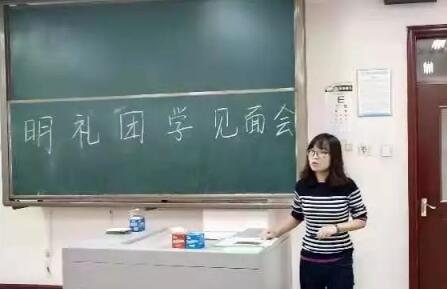 明礼团学见面会
E